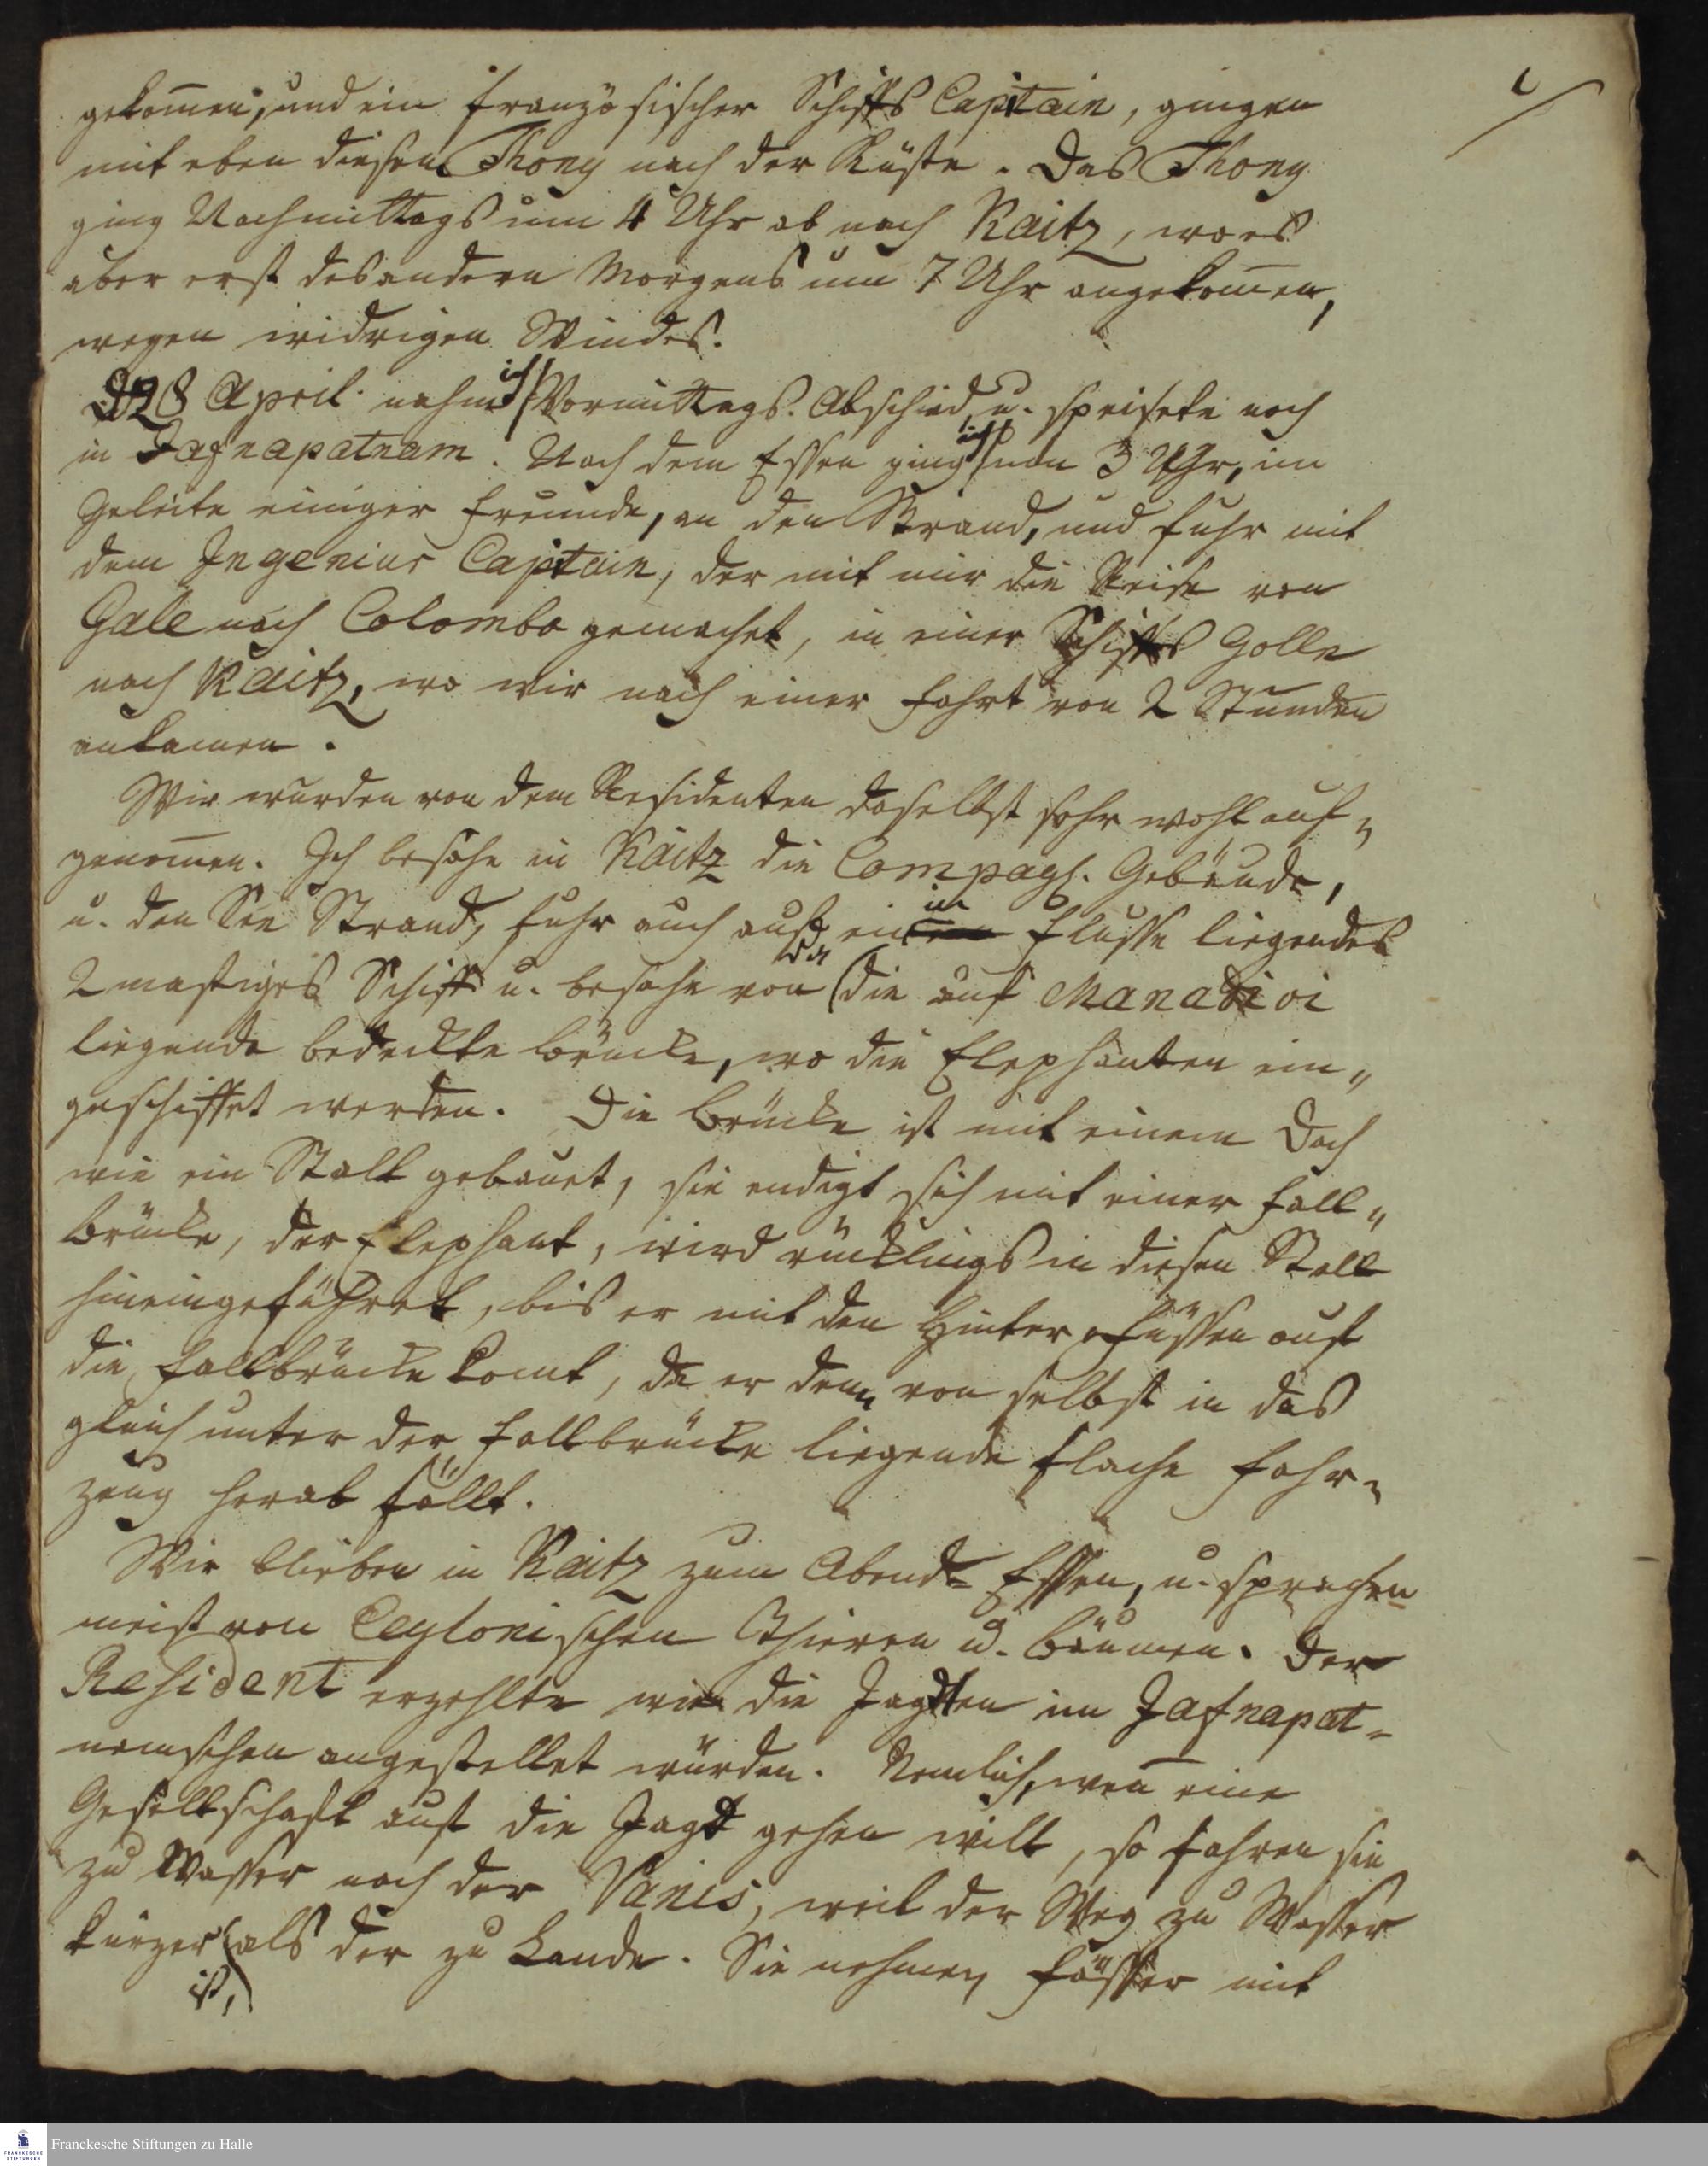 gekom̅en, und ein französischer Schiffs Capitain, gingen
mit eben diesem Thony nach der Küste. Das Thony
ging Nachmittags um 4 Uhr ab nach Kaitz, wo es
aber erst des andern Morgens um 7 Uhr angekom̅en,
wegen widrigen Windes.
D 28 April nahm ich Vormittags Abschied, u. speisete noch
in Jafnapatnam. Nach dem Essen ging ich um 3 Uhr, im
Geleite einiger Freunde, an den Strand, und fuhr mit
dem Ingenius Capitain, der mit mir die Reise von
Gale nach Colombo gemachet, in einer Schiffs Golle
nach Kaitz, wo wir nach einer Fahrt von 2 Stunden
ankamen.
Wir wurden von dem Residenten daselbst sehr wohl auf„
genom̅en. Ich besahe in Kaitz die Compags. Gebäude,
u. den See Strand, fuhr auch auf ein im Flusse liegendes
2 mastiges Schiff u. besahe von da die auf Manadioi
liegende bedeckte Brücke, wo die Elephanten ein„
geschiffet werden. Die Brücke ist mit einem Dach
wie ein Stall gebauet, sie endigt sich mit einer Fall„
brücke, der Elephant, wird rücklings in diesen Stall
hineingeführet, bis er mit den Hinter Füssen auf
die Fallbrücke komt, da er denn von selbst in das
gleich unter der Fallbrücke liegende flache Fahr„
zeug herab fällt.
Wir blieben in Kaitz zum Abend-Essen, u. sprachen
meist von Ceylonischen Thieren u. Bäumen. Der
Resident erzehlte wie die Jagdten im Jafnapat-
namschen angestellet würden. Nemlich, wen̅ eine
Gesellschaft auf die Jagd gehen will, so fahren sie
zu Wasser nach der Vanis, weil der Weg zu Wasser
kürzer ist, als der zu Lande. Sie nehmen Fässer mit
Franckesche Stiftungen zu Halle